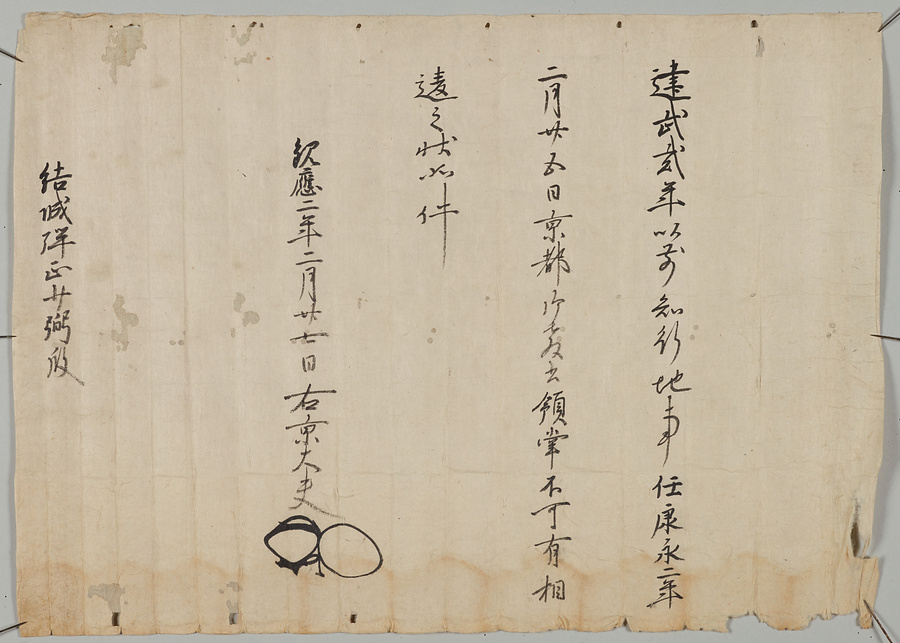 建武貳年以前知行地事任康永二年
二月廿五日京都御教書領掌不可有相
違之状如件
観應二年二月廿七日右京大夫
結城弾正少弼殿